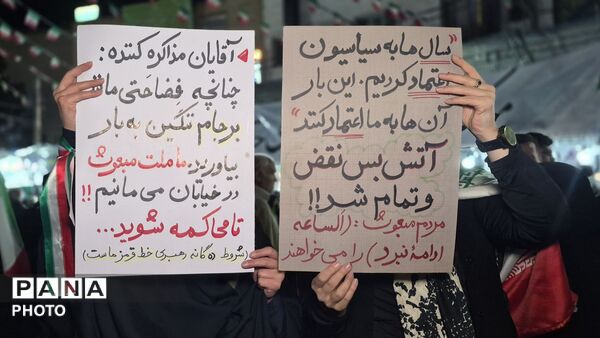 "سال ها به سیاسیون
اعتماد کردیم. این بار
آن ها به ما اعتماد کنند"
آتش بس نقض
و تمام شد!!
مردم مبعوث: (الساعه
ادامهٔ نبرد) را می خواهند
آقایان مذاکره کننده:
چنانچه فضاحتی مانند
برجام ننگین به بار
بیاورید. ما ملت مبعوث
در خیابان می مانیم!!
تا محاکمه شوید...
(شروط ۵ گانه رهبری خط قرمز ماست)
PANA
PHOTO